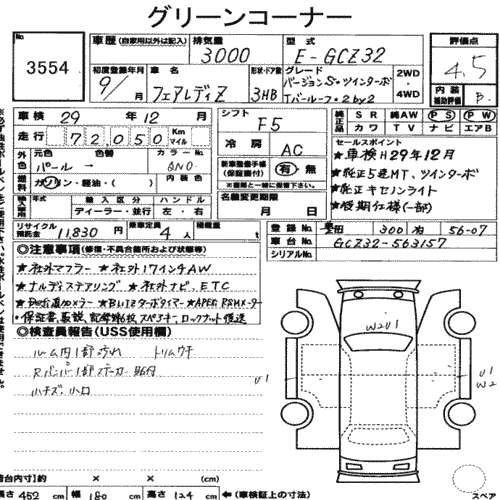 グリーンコーナー
No. 3554
車歴 (自家用以外は記入)
排気量 3000
型式 E-GCZ32
評価点 4.5
内装補助評価 B
初度登録年月 9/ 月
車名 フェアレディZ
形状・ドア数 3HB
グレード バージョンS・ツインターボ
Tバールーフ・2by2
2WD・4WD
車検 29年 12月
走行 72,050 Km マイル
シフト F5
冷房 AC
純正品 SR 純AW PS PW
カワ TV ナビ エアB
セールスポイント
★車検H29年12月
★純正5速MT、ツインターボ
★純正キセノンライト
★後期仕様(一部)
外色 元色 パール→ 色替 カラーNo. QN0
燃料 ガソリン・軽油・( ) 内装色
新車整備手帳(保証書付) 有 無
※保証書は後日に限ります。
輸入車 ディーラー・並行 ハンドル 左・右
名義変更期限 月 日
リサイクル預託金 11,830円
乗車定員 4人
登録No. 300 56-07
車台No. GCZ32-563157
シリアルNo.
◎注意事項(修復・不具合箇所および状態等)
★社外マフラー ★社外17インチAW
★ナルディステアリング ★社外ナビ、ETC
★BLITZターボタイマー ★APEX
・保証書、取説、記録簿
◎検査員報告(USS使用欄)
ルーム内1部汚れ トリムウキ
Rバンパー1部ステッカー貼付
ハナズ、小口
W2U1
U1
U1
荷台内寸約 × × (車検証上の寸法)
長さ 452 cm 幅 180 cm 高さ 124 cm
スペア